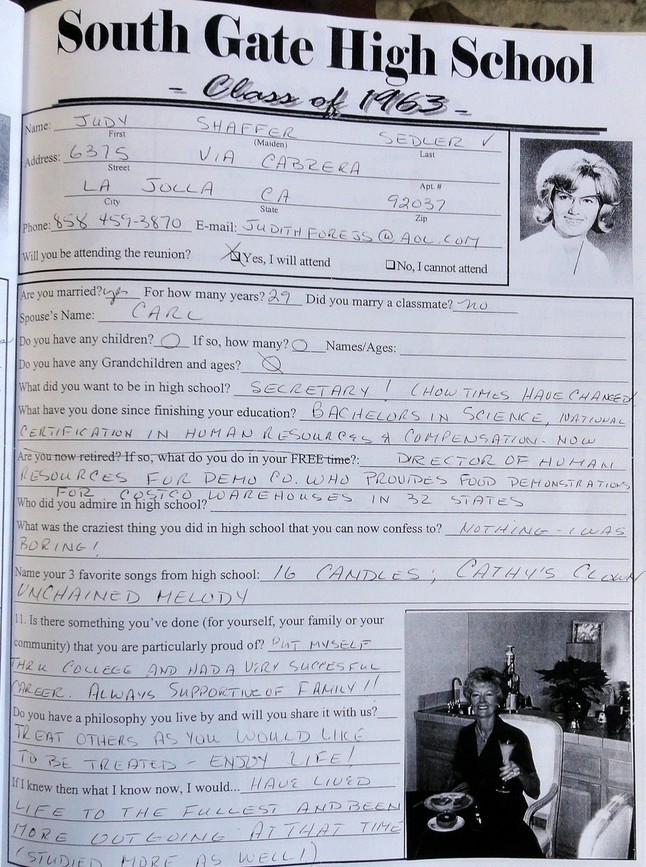 South Gate High School
- Class of 1963 -
Name: JUDY SHAFFER SEDLER ✓
First (Maiden) Last
Address: 6375 VIA CABRERA
Street Apt. #
LA JOLLA CA 92037
City State Zip
Phone: 858 459-3870 E-mail: JUDITHFOREJS@AOL.COM
Will you be attending the reunion? ☒Yes, I will attend ☐No, I cannot attend
Are you married? yes For how many years? 29 Did you marry a classmate? no
Spouse's Name: CARL
Do you have any children? O If so, how many? O Names/Ages:
Do you have any Grandchildren and ages? O
What did you want to be in high school? SECRETARY! (HOW TIMES HAVE CHANGED
What have you done since finishing your education? BACHELORS IN SCIENCE, NATIONAL
CERTIFICATION IN HUMAN RESOURCES & COMPENSATION - NOW
Are you now retired? If so, what do you do in your FREE time?: DIRECTOR OF HUMAN
RESOURCES FOR DEMO CO. WHO PROVIDES FOOD DEMONSTRATIONS
FOR COSTCO WAREHOUSES IN 32 STATES
Who did you admire in high school?
What was the craziest thing you did in high school that you can now confess to? NOTHING - I WAS
BORING!
Name your 3 favorite songs from high school: 16 CANDLES; CATHY'S CLOWN
UNCHAINED MELODY
11. Is there something you've done (for yourself, your family or your
community) that you are particularly proud of? PUT MYSELF
THRU COLLEGE AND HAD A VERY SUCCESFUL
CAREER. ALWAYS SUPPORTIVE OF FAMILY!!
Do you have a philosophy you live by and will you share it with us?
TREAT OTHERS AS YOU WOULD LIKE
TO BE TREATED - ENJOY LIFE!
If I knew then what I know now, I would... HAVE LIVED
LIFE TO THE FULLEST AND BEEN
MORE OUTGOING AT THAT TIME
(STUDIED MORE AS WELL!)